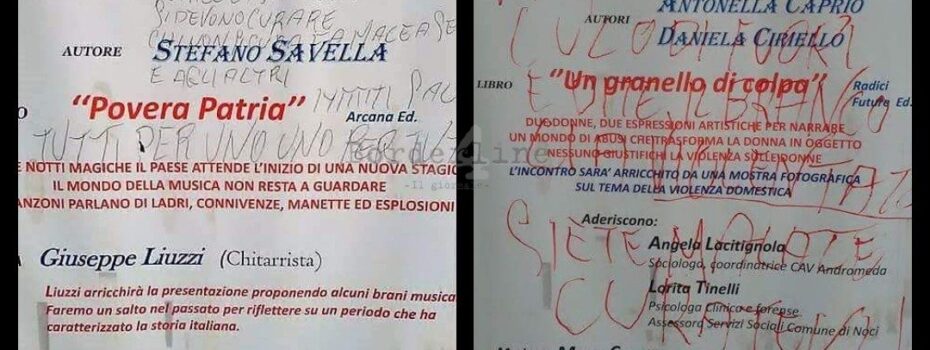 SI DEVONO CURARE
AUTORE STEFANO SAVELLA
E AGLI ALTRI
"Povera Patria" Arcana Ed.
TUTTI PER UNO UNO PER
E NOTTI MAGICHE IL PAESE ATTENDE L'INIZIO DI UNA NUOVA STAGIO
IL MONDO DELLA MUSICA NON RESTA A GUARDARE
ANZONI PARLANO DI LADRI, CONNIVENZE, MANETTE ED ESPLOSIONI
Giuseppe Liuzzi (Chitarrista)
Liuzzi arricchirà la presentazione proponendo alcuni brani musica
Faremo un salto nel passato per riflettere su un periodo che ha
caratterizzato la storia italiana.
ANTONELLA CAPRIO
AUTORI
DANIELA CIRIELLO
LIBRO "Un granello di colpa" Radici
Future Ed.
DUE DONNE, DUE ESPRESSIONI ARTISTICHE PER NARRARE
UN MONDO DI ABUSI CHE TRASFORMA LA DONNA IN OGGETTO
NESSUNO GIUSTIFICHI LA VIOLENZA SULLE DONNE
L'INCONTRO SARA' ARRICCHITO DA UNA MOSTRA FOTOGRAFICA
SUL TEMA DELLA VIOLENZA DOMESTICA
Aderiscono:
SIETE MALATE
Angela Lacitignola
Sociologa, coordinatrice CAV Andromeda
CURATEVI
Lorita Tinelli
Psicologa Clinica e forense
Assessora Servizi Sociali Comune di Noci
Borderline
24
- Il giornale -